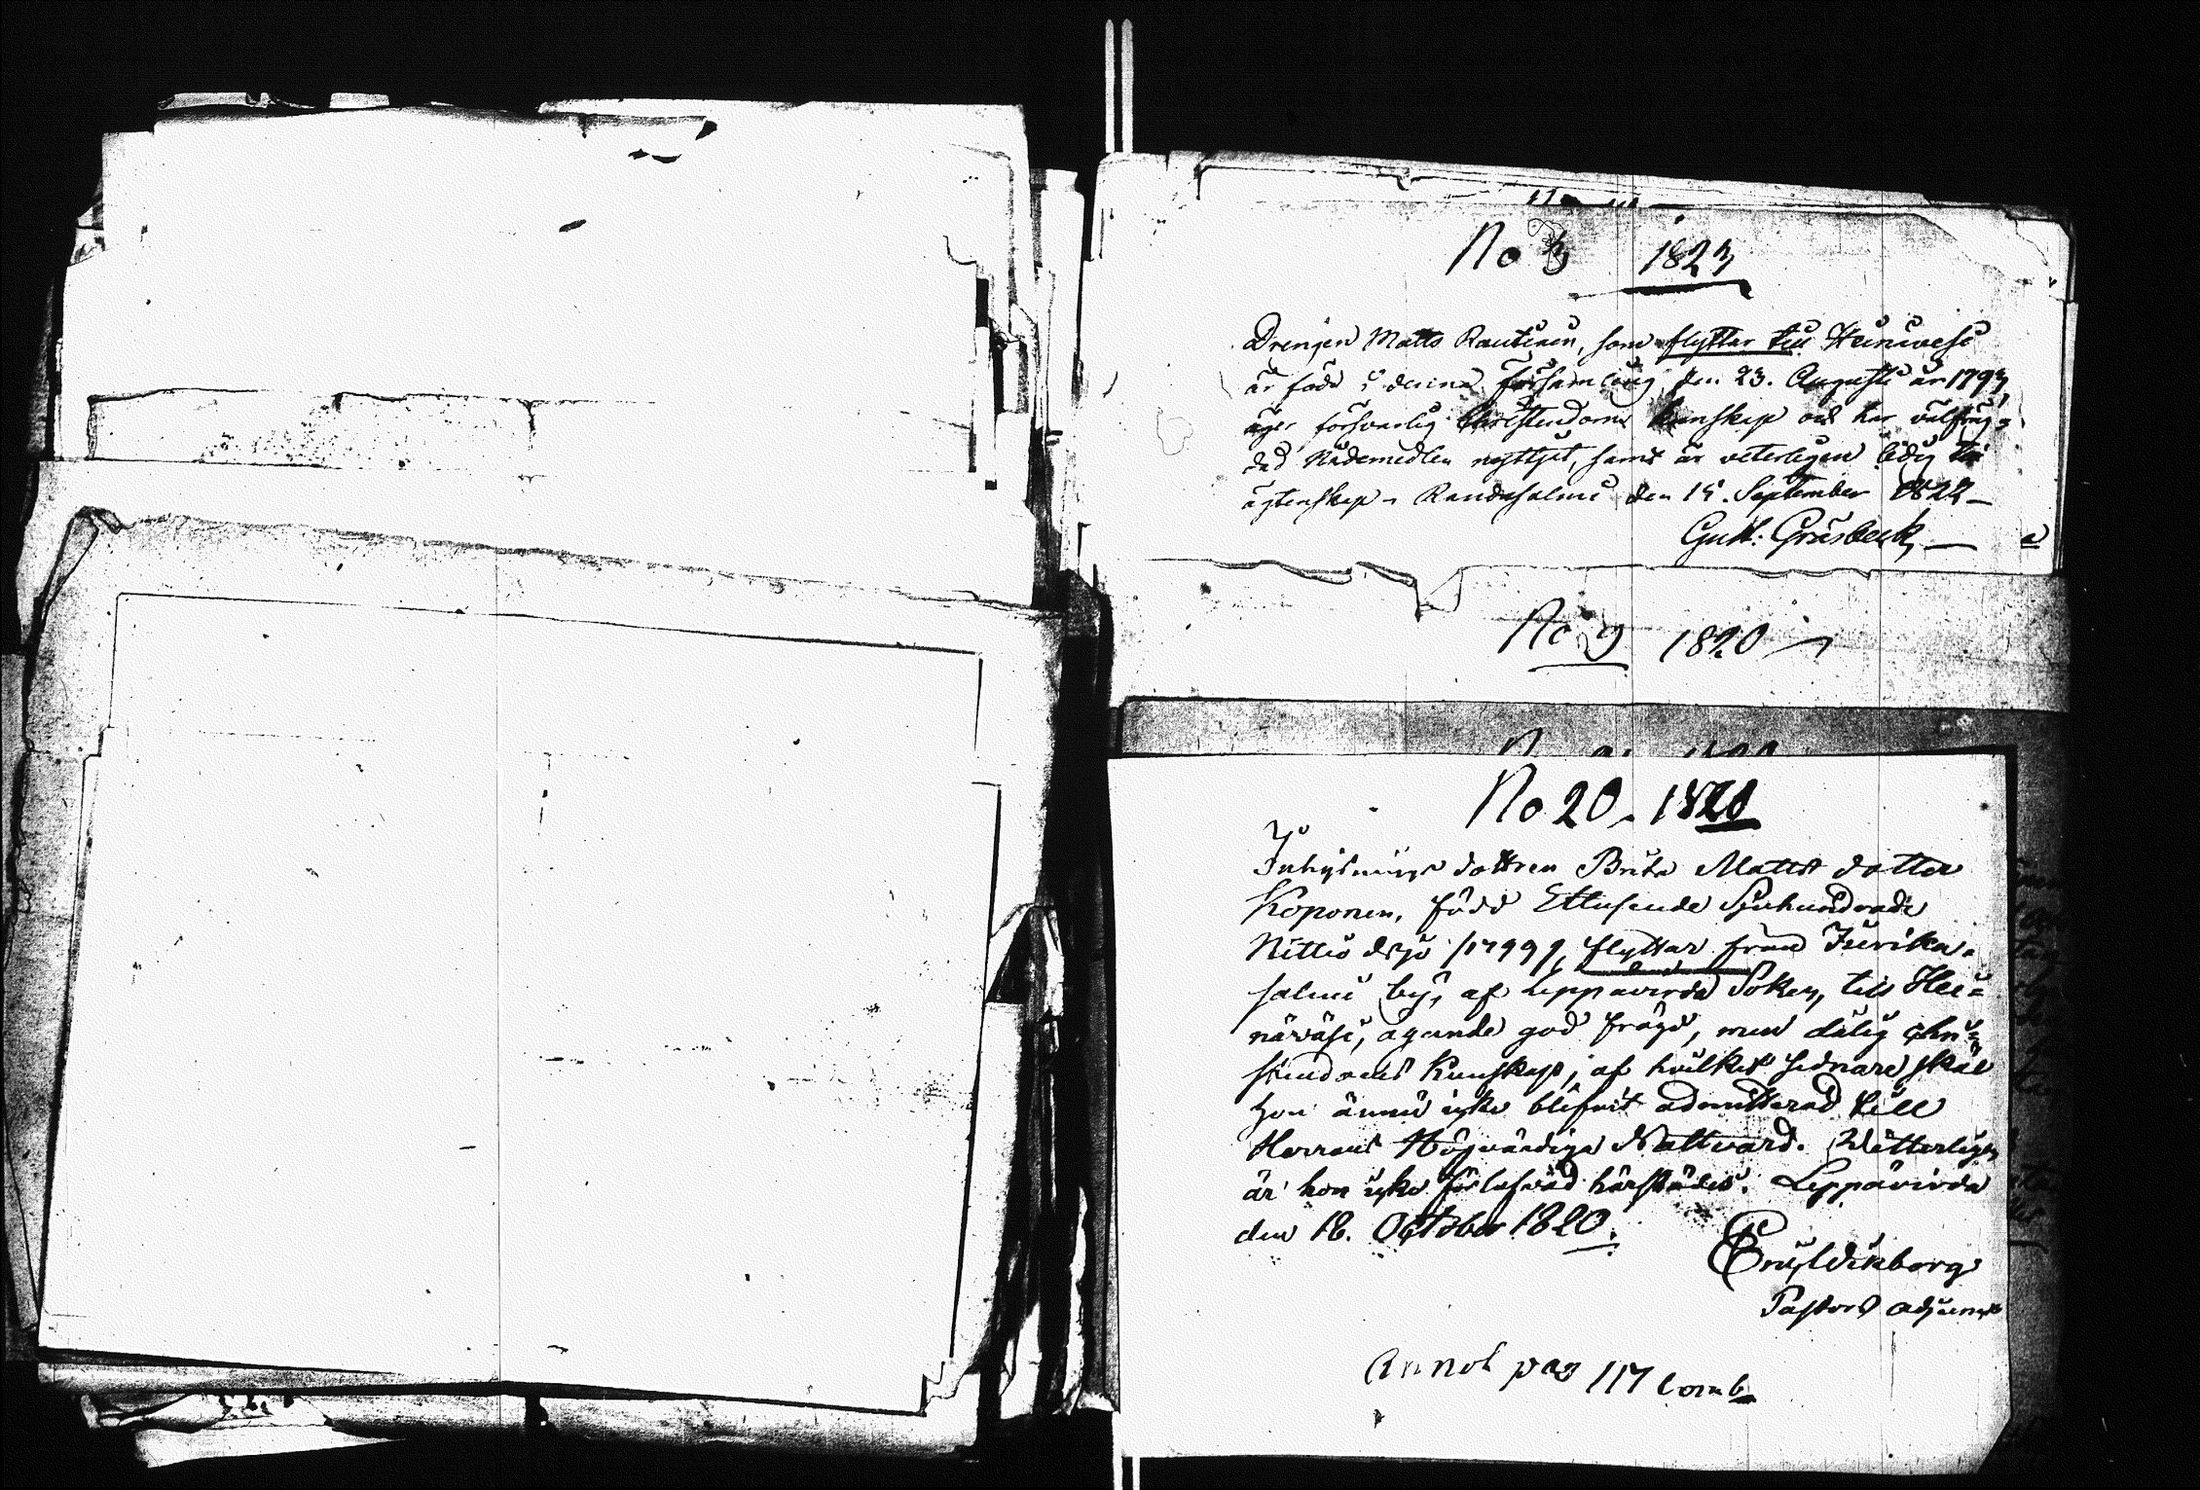 No 3 1823
Drengen Matts Rautiain, som flyttar till Heinävesi
är född i denna församling den 23. Augusti år 1793,
äger försvarlig Christendoms kunskap och har välfräj-
dad Nådemedlen nyttjat, samt är veterligen ledig till
ägtenskap - Randasalmi den 15. September 1822 -
Gust: Gråsbeck
No 9 1820
No 20. 1820
Inhysnings dottren Brita Matts dotter
Koponen, född Ettusende Sjuhundrade
Nittio /1799/, flyttar från
salmi by, af Leppävirda Soken, till Hei=
näväsi, ägande god frägd, men dålig chri=
stendoms kunskap; af hvilket sednare skäl
hon ännu icke blifvit admitterad till
Herrans Högvärdiga Nattvard. Wetterligen
är hon icke förlofwad härstädes. Leppävirda
den 18. October 1820.
Pastors adjunct
Annot pag 117 Comb